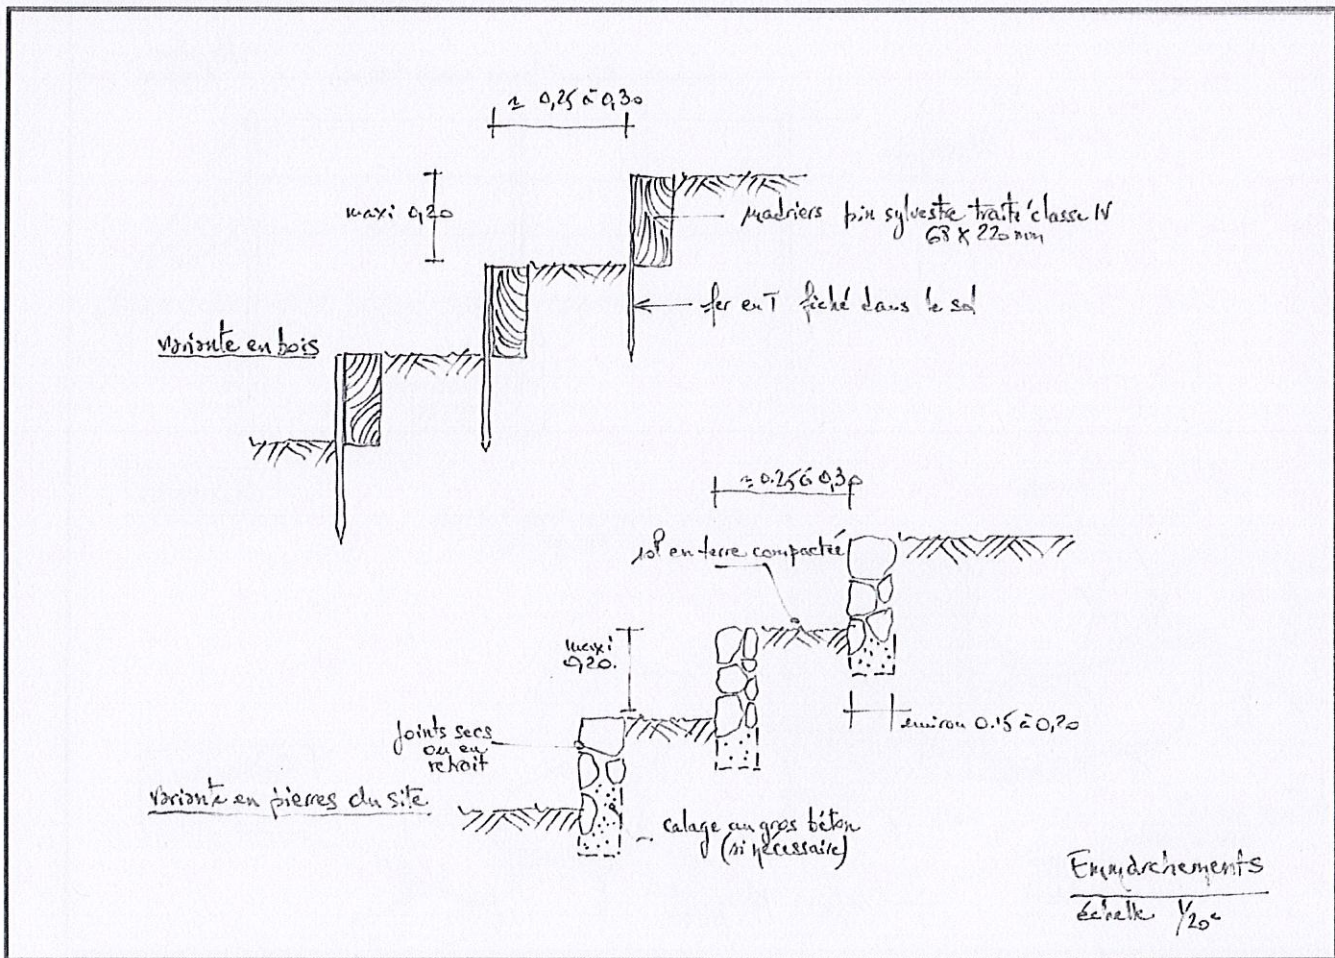 ≃ 0,25 à 0,30
maxi 0,20
madriers pin sylvestre traité classe IV
68 X 220 mm
fer en T fiché dans le sol
variante en bois
≃ 0.25 à 0,30
sol en terre compactée
maxi
0,20.
environ 0.15 à 0,20
joints secs
ou en
retrait
variante en pierres du site
calage au gros béton
(si nécessaire)
Emmarchements
échelle 1/20e